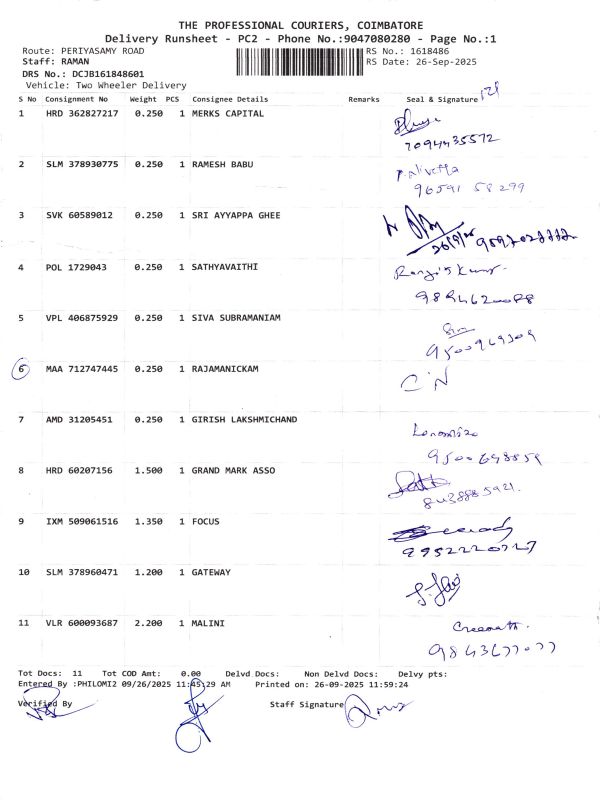 THE PROFESSIONAL COURIERS, COIMBATORE
Delivery Runsheet - PC2 - Phone No.:9047080280 - Page No.:1
Route: PERIYASAMY ROAD RS No.: 1618486
Staff: RAMAN RS Date: 26-Sep-2025
DRS No.: DCJB161848601
Vehicle: Two Wheeler Delivery
S No Consignment No Weight PCS Consignee Details Remarks Seal & Signature
1 HRD 362827217 0.250 1 MERKS CAPITAL
7094435572
2 SLM 378930775 0.250 1 RAMESH BABU
96591 58299
3 SVK 60589012 0.250 1 SRI AYYAPPA GHEE
4 POL 1729043 0.250 1 SATHYAVAITHI
5 VPL 406875929 0.250 1 SIVA SUBRAMANIAM
9500969309
6 MAA 712747445 0.250 1 RAJAMANICKAM
7 AMD 31205451 0.250 1 GIRISH LAKSHMICHAND
8 HRD 60207156 1.500 1 GRAND MARK ASSO
9 IXM 509061516 1.350 1 FOCUS
10 SLM 378960471 1.200 1 GATEWAY
11 VLR 600093687 2.200 1 MALINI
Tot Docs: 11 Tot COD Amt: 0.00 Delvd Docs: Non Delvd Docs: Delvy pts:
Entered By :PHILOMI2 09/26/2025 11:45:29 AM Printed on: 26-09-2025 11:59:24
Verified By Staff Signature